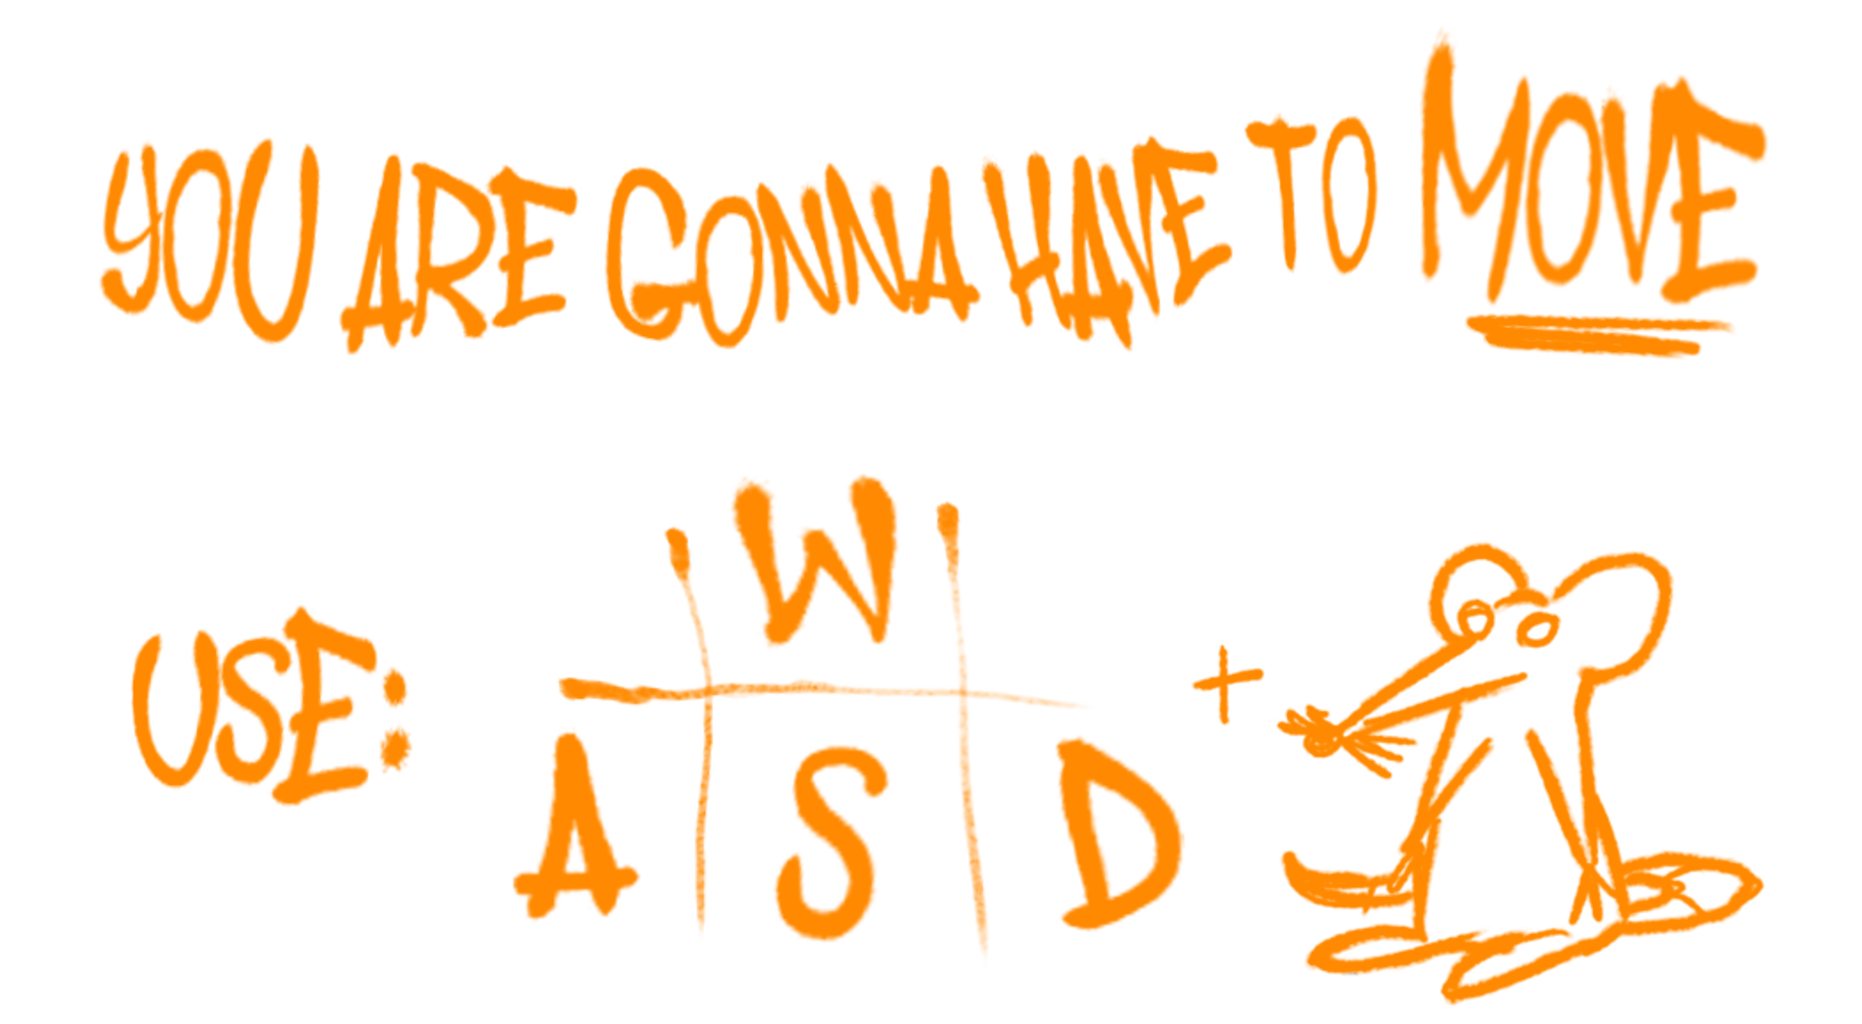 YOU ARE GONNA HAVE TO MOVE
W
USE: +
A S D